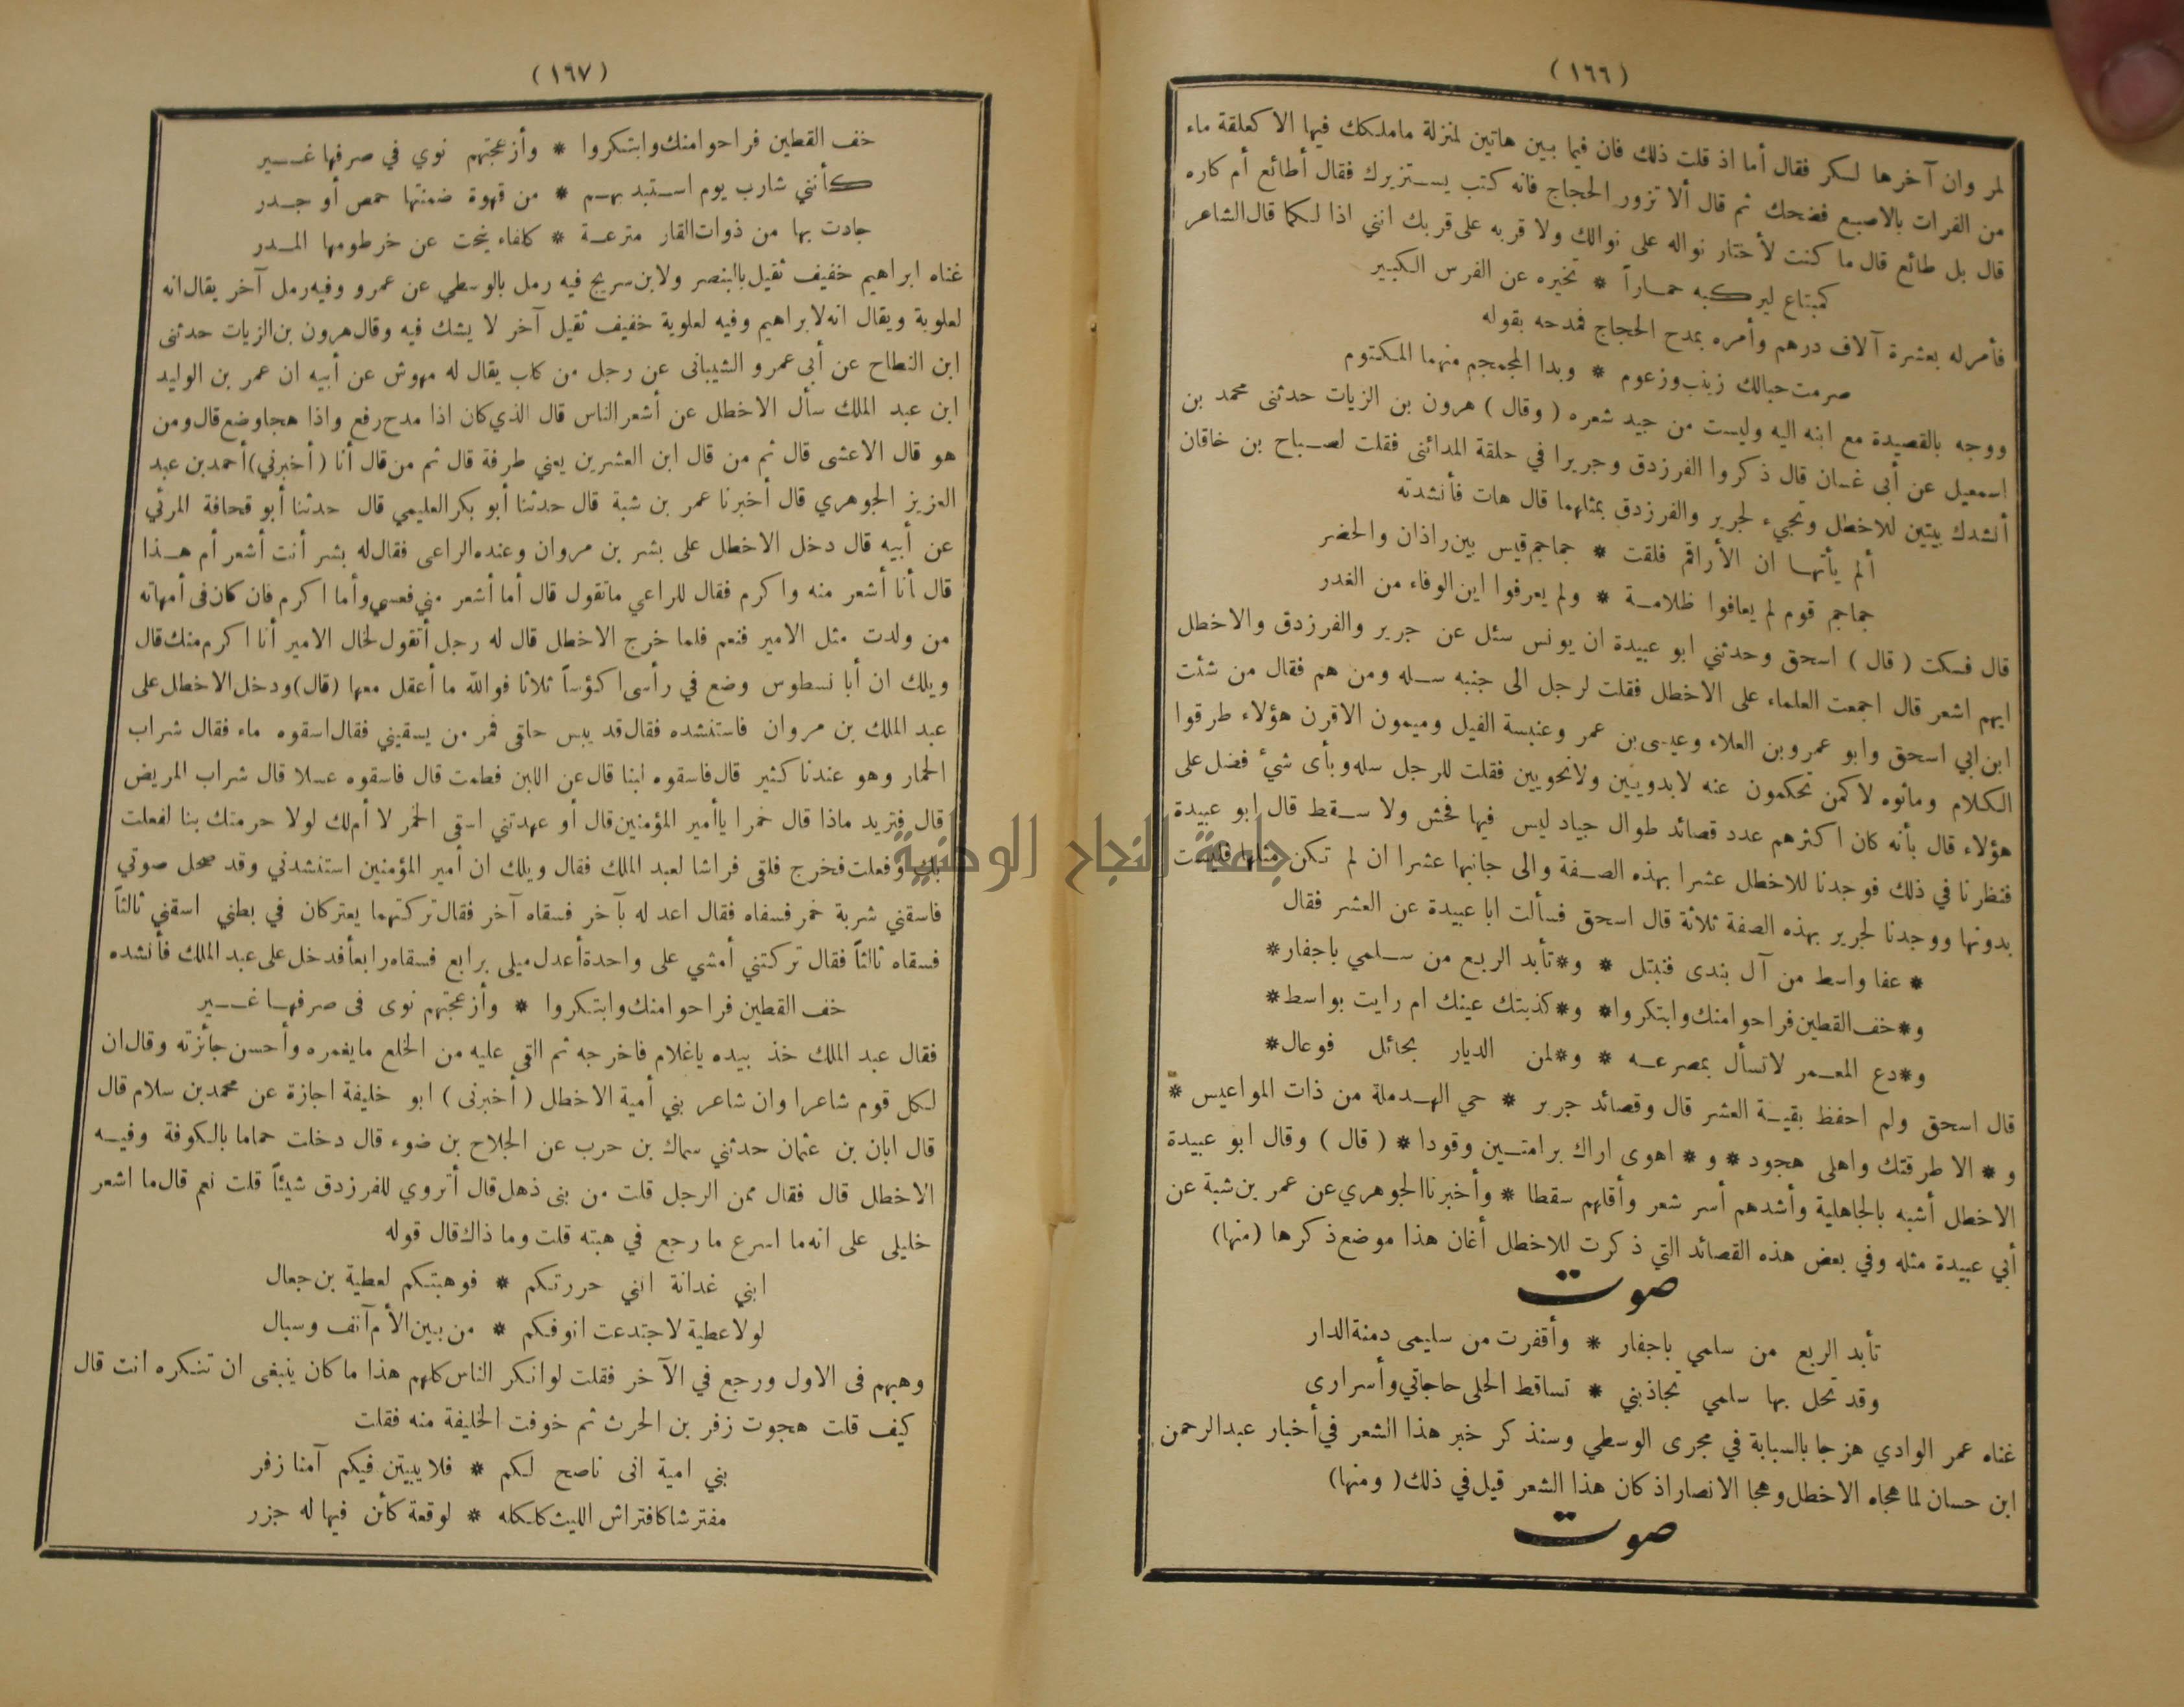 (١٦٦)
لمر وان آخرها لسكر فقال أما اذ قلت ذلك فان فيما بين هاتين لمنزلة ماملكك فيها الا كعلقة ماء
من الفرات بالاصبع فضحك ثم قال ألا تزور الحجاج فانه كتب يستزيرك فقال أطائع أم كاره
قال بل طائع قال ما كنت لأختار نواله على نوالك ولا قربه على قربك انني اذا لكما قال الشاعر
كمبتاع ليركبه حماراً * تخيره عن الفرس الكبير
فأمرله بعشرة آلاف درهم وأمره بمدح الحجاج فمدحه بقوله
صرمت حبالك زينب وزعوم * وبدا المجمجم منهما المكتوم
ووجه بالقصيدة مع ابنه اليه وليست من جيد شعره (وقال) هرون بن الزيات حدثنى محمد بن
اسمعيل عن أبى غسان قال ذكروا الفرزدق وجريرا في حلقة المدائنى فقلت لصباح بن خاقان
أنشدك بيتين للاخطل وتجيء لجرير والفرزدق بمثلهما قال هات فأنشدته
ألم يأتها ان الأراقم فلقت * جماجم قيس بين راذان والحضر
جماجم قوم لم يعافوا ظلامة * ولم يعرفوا اين الوفاء من الغدر
قال فسكت (قال) اسحق وحدثني ابو عبيدة ان يونس سئل عن جرير والفرزدق والاخطل
ايهم اشعر قال اجمعت العلماء على الاخطل فقلت لرجل الى جنبه سله ومن هم فقال من شئت
ابن ابي اسحق وابو عمرو بن العلاء وعيسى بن عمر وعنبسة الفيل وميمون الاقرن هؤلاء طرقوا
الكلام وماثوه لا كمن تحكمون عنه لا بدويين ولا نحويين فقلت للرجل سله وبأى شيء فضل على
هؤلاء قال بأنه كان اكثرهم عدد قصائد طوال جياد ليس فيها فحش ولا سقط قال ابو عبيدة
فنظرنا في ذلك فوجدنا للاخطل عشرا بهذه الصفة والى جانبها عشرا ان لم تكن مثلها فليست
بدونها ووجدنا لجرير بهذه الصفة ثلاثة قال اسحق فسألت ابا عبيدة عن العشر فقال
* عفا واسط من آل بندى فنبتل * و*تأبد الربع من سلمي باجفار*
و*خف القطين فراحوا منك وابتكروا* و*كذبتك عينك ام رايت بواسط*
و*دع المعمر لا تسأل بمصرعه * و*لمن الديار بحائل فوعال*
قال اسحق ولم احفظ بقية العشر قال وقصائد جرير * حي الهدملة من ذات المواعيس *
و * الا طرقتك واهلى هجود * و * اهوى اراك برامتين وقودا * (قال) وقال ابو عبيدة
الاخطل أشبه بالجاهلية وأشدهم أسر شعر وأقلهم سقطا * وأخبرنا الجوهري عن عمر بن شبة عن
أبي عبيدة مثله وفي بعض هذه القصائد التي ذكرت للاخطل أغان هذا موضع ذكرها (منها)
صوت
تأبد الربع من سلمي باجفار * وأقفرت من سليمى دمنة الدار
وقد تحل بها سلمي تجاذبني * تساقط الحلى حاجاتي وأسرارى
غناه عمر الوادي هزجا بالسبابة في مجرى الوسطي وسنذكر خبر هذا الشعر في أخبار عبد الرحمن
ابن حسان لما هجاه الاخطل وهجا الانصار اذ كان هذا الشعر قيل في ذلك (ومنها)
صوت
(١٦٧)
خف القطين فراحوا منك وابتكروا * وأزعجتهم نوي في صرفها غير
كأنني شارب يوم استبد بهم * من قهوة ضمنتها حمص أو جدر
جادت بها من ذوات القار مترعة * كلفاء ينحت عن خرطومها المدر
غناه ابراهيم خفيف ثقيل بالبنصر ولابن سريج فيه رمل بالوسطي عن عمرو وفيه رمل آخر يقال انه
لعلوية ويقال انه لابراهيم وفيه لعلوية خفيف ثقيل آخر لا يشك فيه وقال هرون بن الزيات حدثنى
ابن النطاح عن أبي عمرو الشيبانى عن رجل من كلب يقال له مهوش عن أبيه ان عمر بن الوليد
ابن عبد الملك سأل الاخطل عن أشعر الناس قال الذي كان اذا مدح رفع واذا هجا وضع قال ومن
هو قال الاعشى قال ثم من قال ابن العشرين يعني طرفة قال ثم من قال أنا (أخبرني) أحمد بن عبد
العزيز الجوهري قال أخبرنا عمر بن شبة قال حدثنا أبو بكر العليمي قال حدثنا أبو قحافة المرئي
عن أبيه قال دخل الاخطل على بشر بن مروان وعنده الراعى فقال له بشر أنت أشعر أم هذا
قال أنا أشعر منه واكرم فقال للراعي ماتقول قال أما أشعر مني فعسي وأما اكرم فان كان فى أمهاته
من ولدت مثل الامير فنعم فلما خرج الاخطل قال له رجل أتقول لخال الامير أنا اكرم منك قال
ويلك ان أبا نسطوس وضع في رأسى اكؤساً ثلاثا فوالله ما أعقل معها (قال) ودخل الاخطل على
عبد الملك بن مروان فاستنشده فقال قد يبس حلقى فمر من يسقيني فقال اسقوه ماء فقال شراب
الحمار وهو عندنا كثير قال فاسقوه لبنا قال عن اللبن فطمت قال فاسقوه عسلا قال شراب المريض
قال فتريد ماذا قال خمرا ياأمير المؤمنين قال أو عهدتني اسقى الخمر لا أم لك لولا حرمتك بنا لفعلت
بك وفعلت فخرج فلقى فراشا لعبد الملك فقال ويلك ان أمير المؤمنين استنشدني وقد صحل صوتي
فاسقني شربة خمر فسقاه فقال اعد له بآخر فسقاه آخر فقال تركتهما يعتركان في بطني اسقني ثالثاً
فسقاه ثالثاً فقال تركتني أمشي على واحدة أعدل ميلى برابع فسقاه رابعاً فدخل على عبد الملك فأنشده
خف القطين فراحوا منك وابتكروا * وأزعجتهم نوى فى صرفها غير
فقال عبد الملك خذ بيده ياغلام فاخرجه ثم القى عليه من الخلع مايغمره وأحسن جائزته وقال ان
لكل قوم شاعرا وان شاعر بني أمية الاخطل (أخبرنى) ابو خليفة اجازة عن محمد بن سلام قال
قال ابان بن عثمان حدثني سماك بن حرب عن الجلاح بن ضوء قال دخلت حماما بالكوفة وفيه
الاخطل قال فقال ممن الرجل قلت من بنى ذهل قال أتروي للفرزدق شيئاً قلت نعم قال ما اشعر
خليلى على انه ما اسرع ما رجع في هبته قلت وما ذاك قال قوله
ابني غدانة انني حررتكم * فوهبتكم لعطية بن جعال
لولا عطية لاجتدعت انوفكم * من بين الأم آنف وسبال
وهبهم فى الاول ورجع في الآخر فقلت لو انكر الناس كلهم هذا ما كان ينبغى ان تنكره انت قال
كيف قلت هجوت زفر بن الحرث ثم خوفت الخليفة منه فقلت
بني امية انى ناصح لكم * فلا يبيتن فيكم آمنا زفر
مفترشا كافتراش الليث كلكله * لوقعة كأن فيها له جزر
جامعة النجاح الوطنية